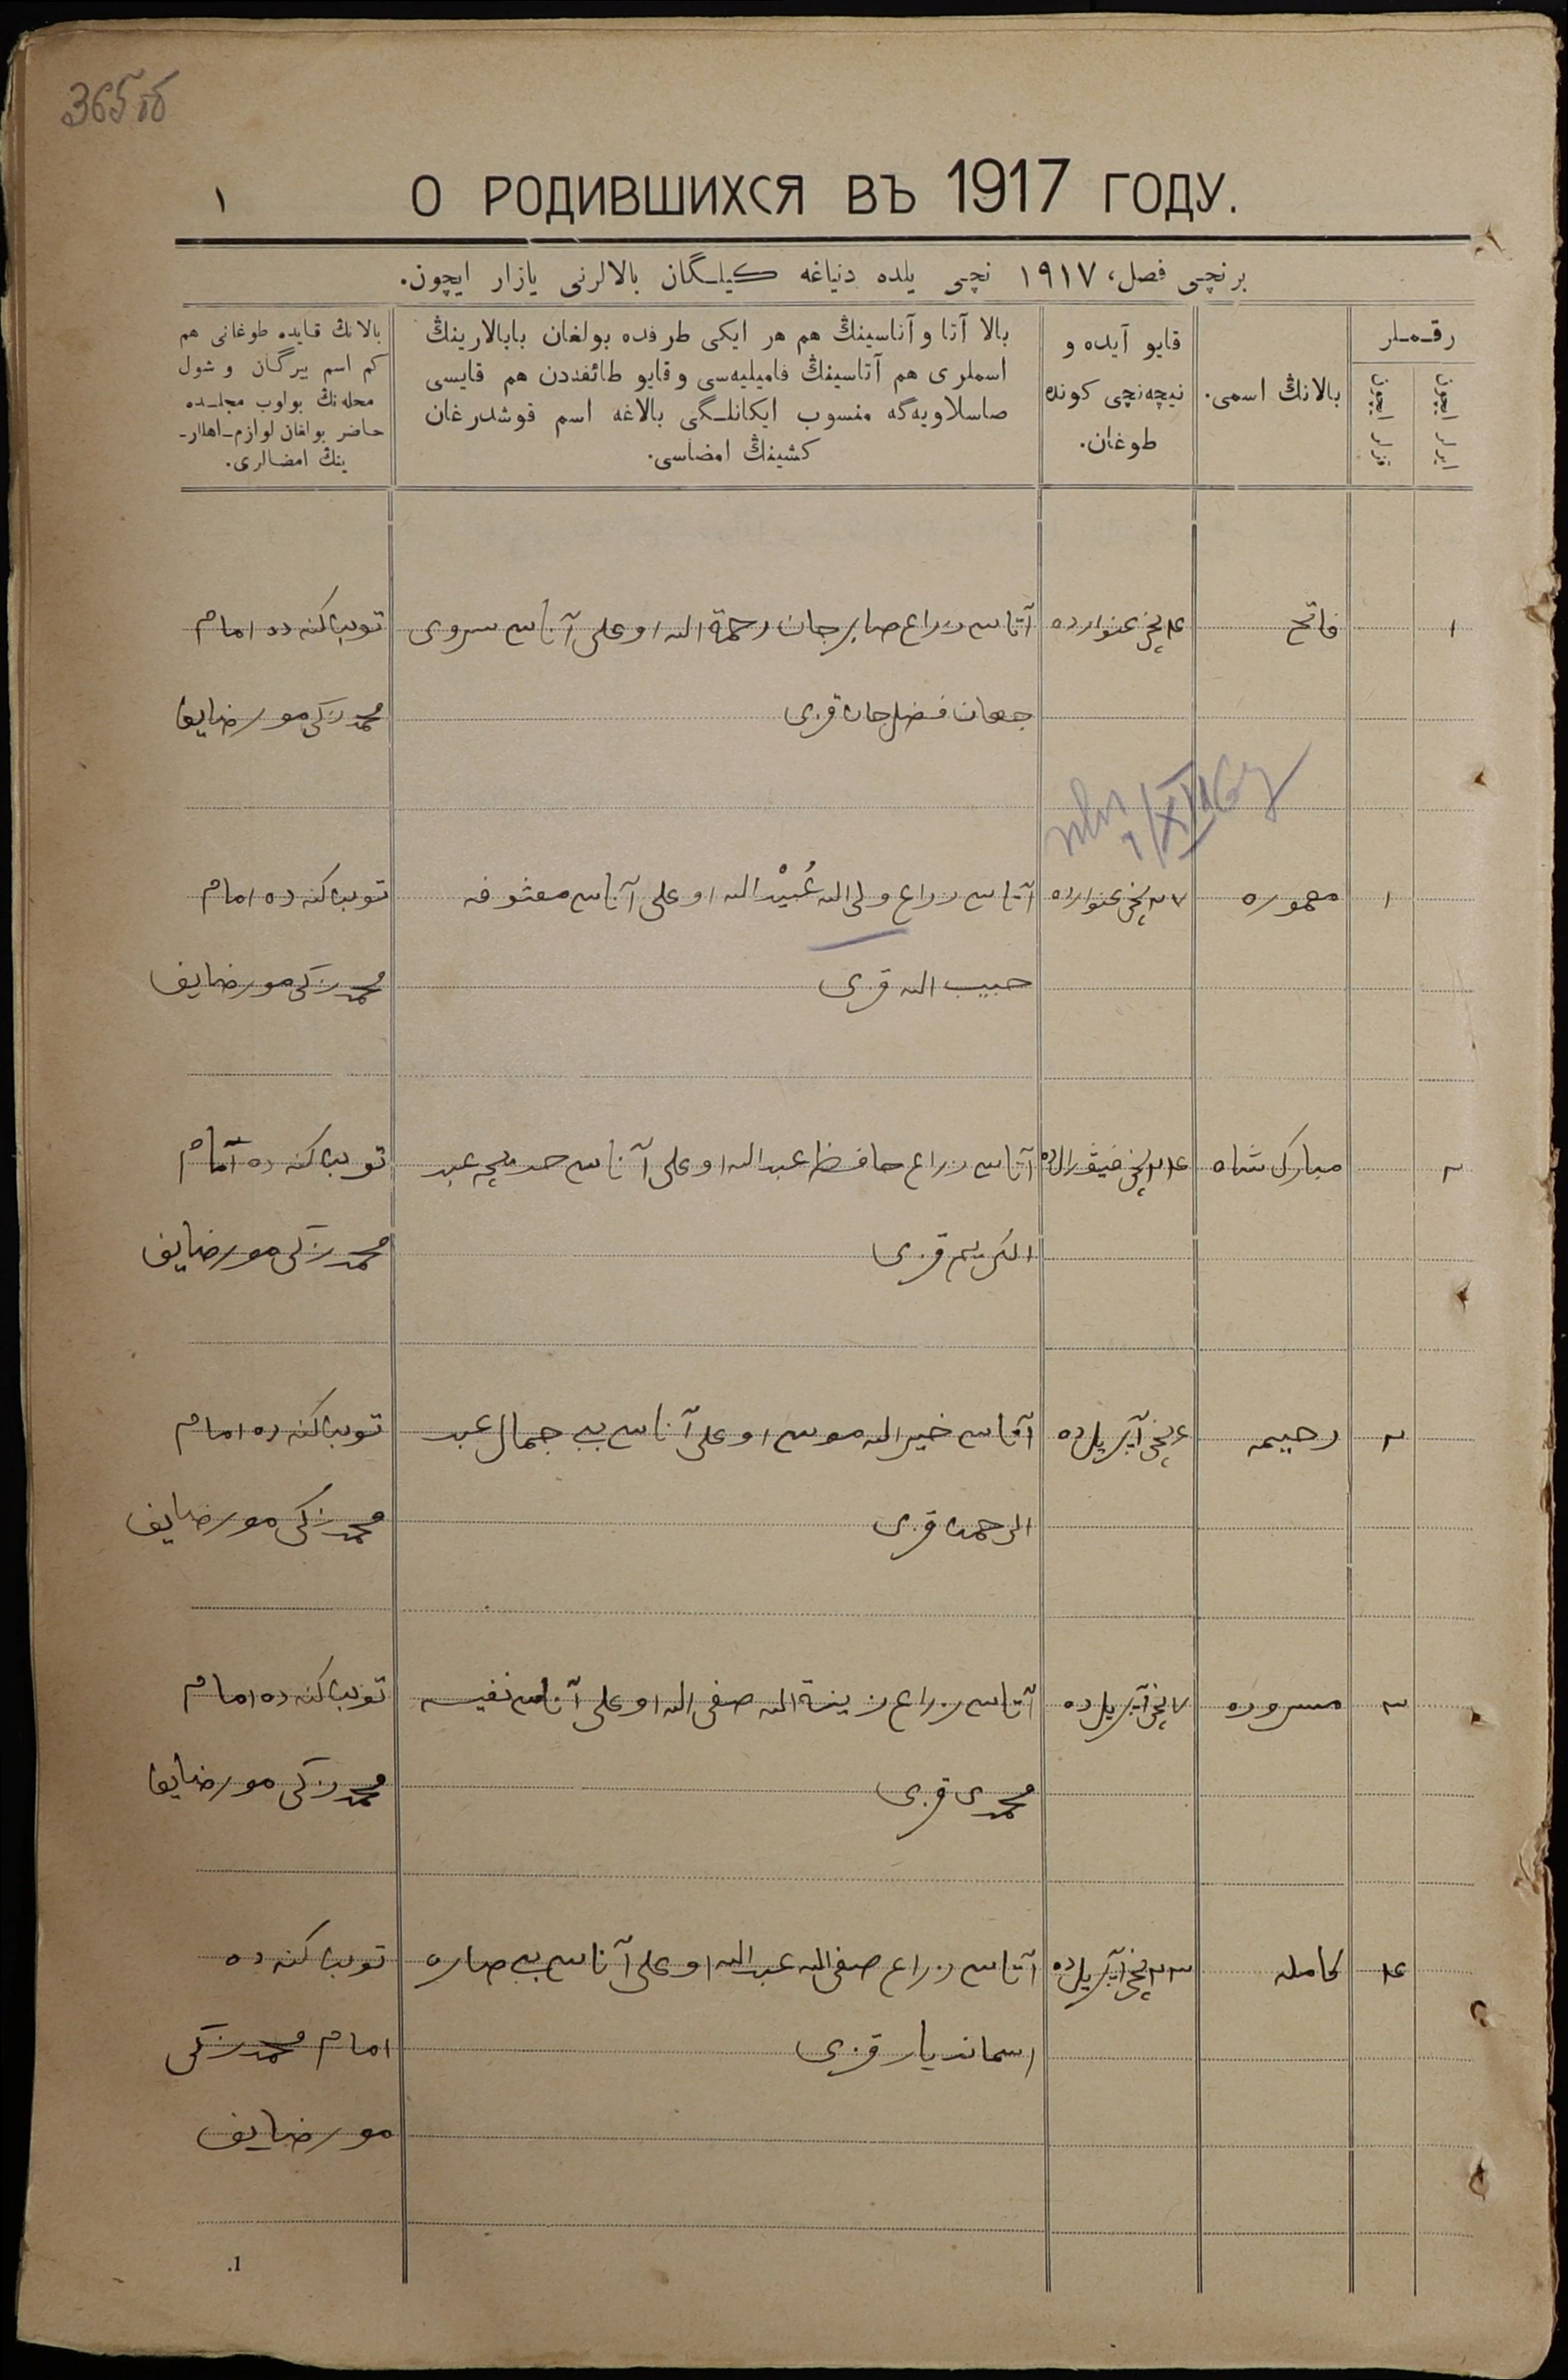 365 об
О РОДИВШИХСЯ ВЪ 1917 ГОДУ.
١
برنچی فصل، ١٩١٧ نچی یلده دنیاغه کیلـگان بالالرنی یازار ایچون.
رقـملر
ایرلر ایچون
قزلر ایچون
بالانڭ اسمی.
قایو آیده و
نیچه‌نچی کونده
طوغان.
بالا آتا و آناسینڭ هم هر ایکی طرفده بولغان بابالارینڭ
اسملری هم آتاسینڭ فامیلیه‌سی و قایو طائفه‌دن هم قایسی
صاسلاویه‌گه منسوب ایکانلـگی بالاغه اسم قوشدرغان
کشینڭ امضاسی.
بالانڭ قایده طوغانی هم
کم اسم بیرگان و شول
محله‌نڭ بولوب مجلـده
حاضر بولغان لوازم اهللر-
ینڭ امضالری.
١
فاتح
غنوارده
آتاسی زراع صابرجان رحمة الله اوغلی آناسی سروی
جهان فضل جان قزی
امام
محمد زکی مورضایف
١
معموره
٢٧ نچی غنوارده
آتاسی زراع ولی الله عُبَیْد الله اوغلی آناسی معثوفه
حبیب الله قزی
امام
محمد زکی مورضایف
٢
مبارک شاه
٢٤ نچی فیفرالده
آتاسی زراع حافظ عبد الله اوغلی آناسی خدیجه عبد
الکریم قزی
امام
محمد زکی مورضایف
٢
رحیمه
نچی آپریلده
آتاسی خیر الله موسی اوغلی آناسی بی بی جمال عبد
الرحمن قزی
امام
محمد زکی مورضایف
٣
مسروره
٧ نچی آپریلده
آتاسی زراع زینة الله صفی الله اوغلی آناسی نفیسه
محمدی قزی
امام
محمد زکی مورضایف
٤
کامله
٢٣ نچی آپریلده
آتاسی زراع صفی الله عبد الله اوغلی آناسی بی بی صاره
اسماندیار قزی
امام محمد زکی
مورضایف
1.